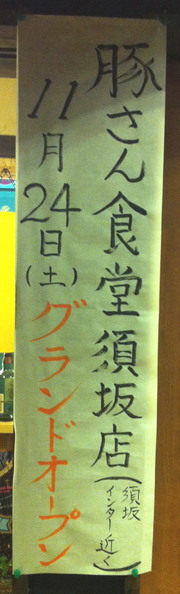 豚さん食堂須坂店(須坂インター近く)
11月24日(土)グランドオープン